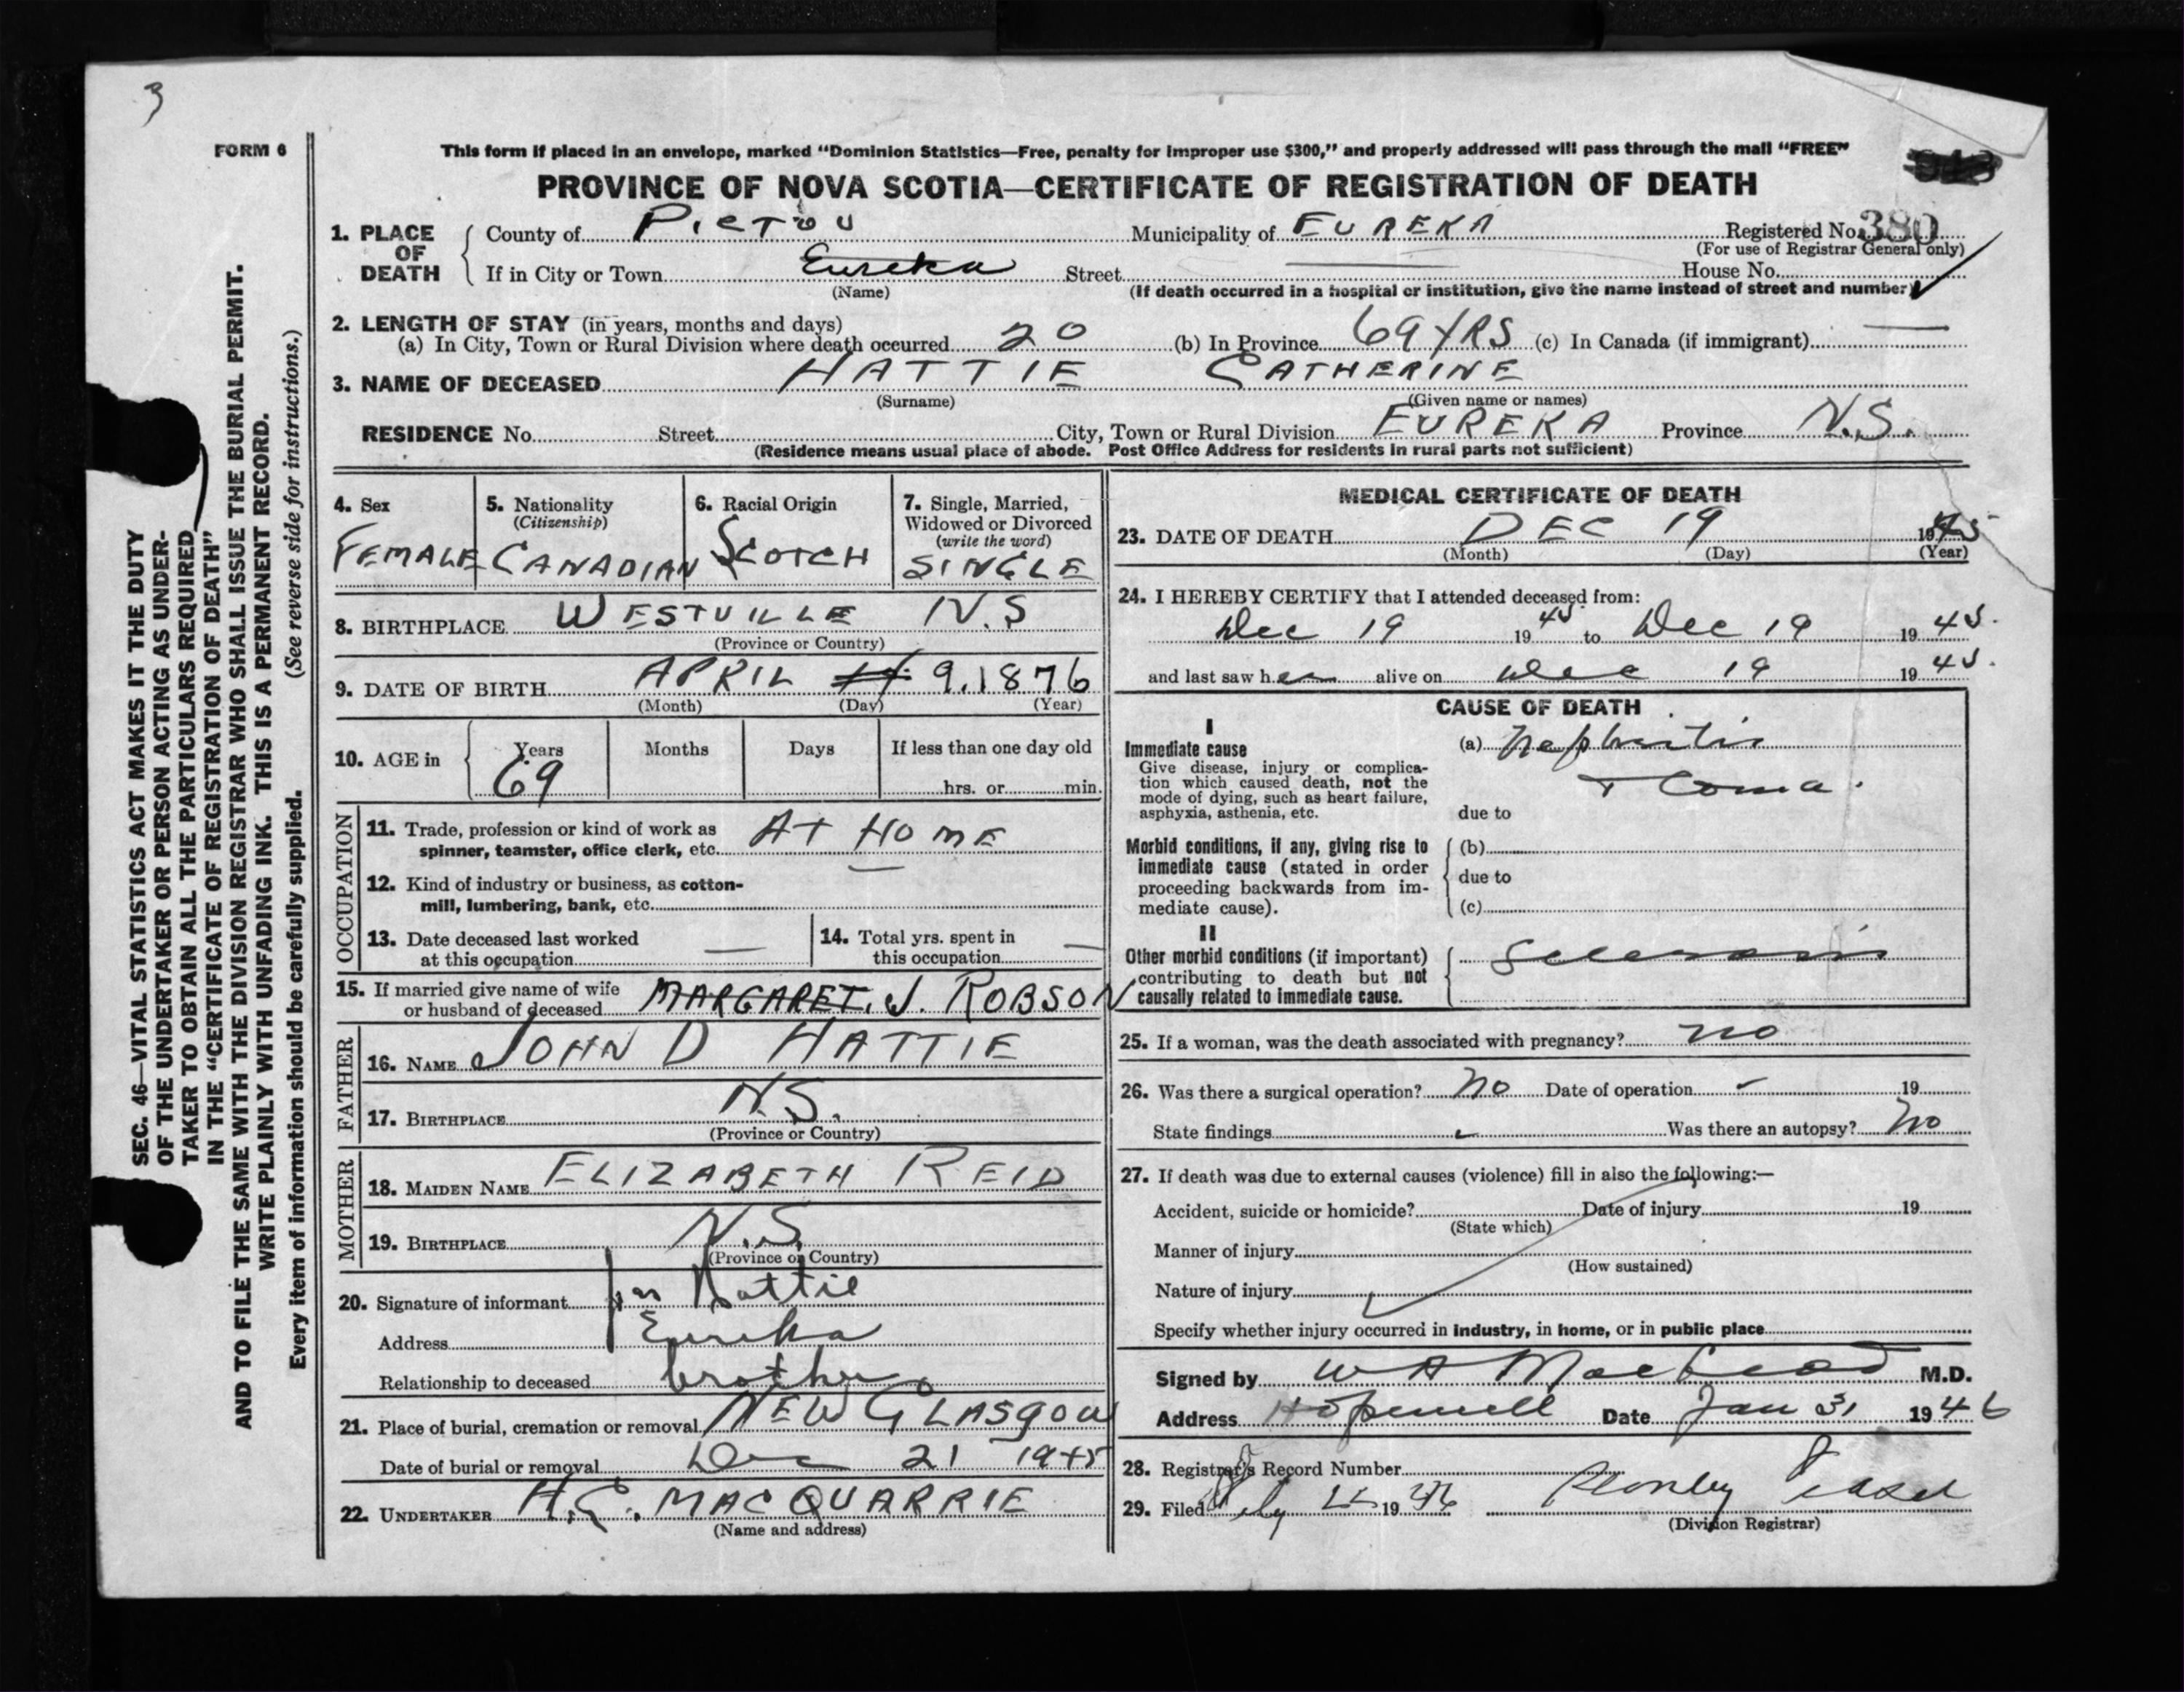 3
FORM 6
This form if placed in an envelope, marked “Dominion Statistics—Free, penalty for improper use $300,” and properly addressed will pass through the mail “FREE”
PROVINCE OF NOVA SCOTIA—CERTIFICATE OF REGISTRATION OF DEATH
1. PLACE OF DEATH County of PICTOU Municipality of EUREKA Registered No. 380
(For use of Registrar General only)
If in City or Town Eureka Street House No.
(Name) (If death occurred in a hospital or institution, give the name instead of street and number)
2. LENGTH OF STAY (in years, months and days)
(a) In City, Town or Rural Division where death occurred 20 (b) In Province 69 YRS (c) In Canada (if immigrant) —
3. NAME OF DECEASED HATTIE CATHERINE
(Surname) (Given name or names)
RESIDENCE No. Street City, Town or Rural Division EUREKA Province N.S.
(Residence means usual place of abode. Post Office Address for residents in rural parts not sufficient)
4. Sex FEMALE
5. Nationality (Citizenship) CANADIAN
6. Racial Origin SCOTCH
7. Single, Married, Widowed or Divorced (write the word) SINGLE
8. BIRTHPLACE WESTVILLE N.S
(Province or Country)
9. DATE OF BIRTH APRIL 9, 1876
(Month) (Day) (Year)
10. AGE in Years 69 Months Days If less than one day old
hrs. or min.
OCCUPATION
11. Trade, profession or kind of work as AT HOME
spinner, teamster, office clerk, etc.
12. Kind of industry or business, as cotton- —
mill, lumbering, bank, etc.
13. Date deceased last worked at this occupation —
14. Total yrs. spent in this occupation —
15. If married give name of wife or husband of deceased MARGARET. J. ROBSON
FATHER
16. NAME JOHN D HATTIE
17. BIRTHPLACE N.S.
(Province or Country)
MOTHER
18. MAIDEN NAME ELIZABETH REID
19. BIRTHPLACE N.S.
(Province or Country)
20. Signature of informant Hattie
Address Eureka
Relationship to deceased brother
21. Place of burial, cremation or removal NEW GLASGOW
Date of burial or removal Dec 21 1945
22. UNDERTAKER H.C. MACQUARRIE
(Name and address)
MEDICAL CERTIFICATE OF DEATH
23. DATE OF DEATH DEC 19 1945
(Month) (Day) (Year)
24. I HEREBY CERTIFY that I attended deceased from:
Dec 19 1945 to Dec 19 1945.
and last saw her alive on Dec 19 1945.
CAUSE OF DEATH
I
Immediate cause (a) Nephritis
Give disease, injury or complica- + Coma.
tion which caused death, not the
mode of dying, such as heart failure,
asphyxia, asthenia, etc. due to
Morbid conditions, if any, giving rise to (b)
immediate cause (stated in order
proceeding backwards from im- due to
mediate cause). (c)
II
Other morbid conditions (if important) Sclerosis
contributing to death but not
causally related to immediate cause.
25. If a woman, was the death associated with pregnancy? no
26. Was there a surgical operation? No Date of operation - 19
State findings Was there an autopsy? No
27. If death was due to external causes (violence) fill in also the following:—
Accident, suicide or homicide? Date of injury 19
(State which)
Manner of injury
(How sustained)
Nature of injury
Specify whether injury occurred in industry, in home, or in public place
Signed by W A MacLeod M.D.
Address Hopewell Date Jan 31 1946
28. Registrar's Record Number
29. Filed 1946
(Division Registrar)
SEC. 46—VITAL STATISTICS ACT MAKES IT THE DUTY
OF THE UNDERTAKER OR PERSON ACTING AS UNDER-
TAKER TO OBTAIN ALL THE PARTICULARS REQUIRED
IN THE “CERTIFICATE OF REGISTRATION OF DEATH”
AND TO FILE THE SAME WITH THE DIVISION REGISTRAR WHO SHALL ISSUE THE BURIAL PERMIT.
WRITE PLAINLY WITH UNFADING INK. THIS IS A PERMANENT RECORD.
Every item of information should be carefully supplied. (See reverse side for instructions.)